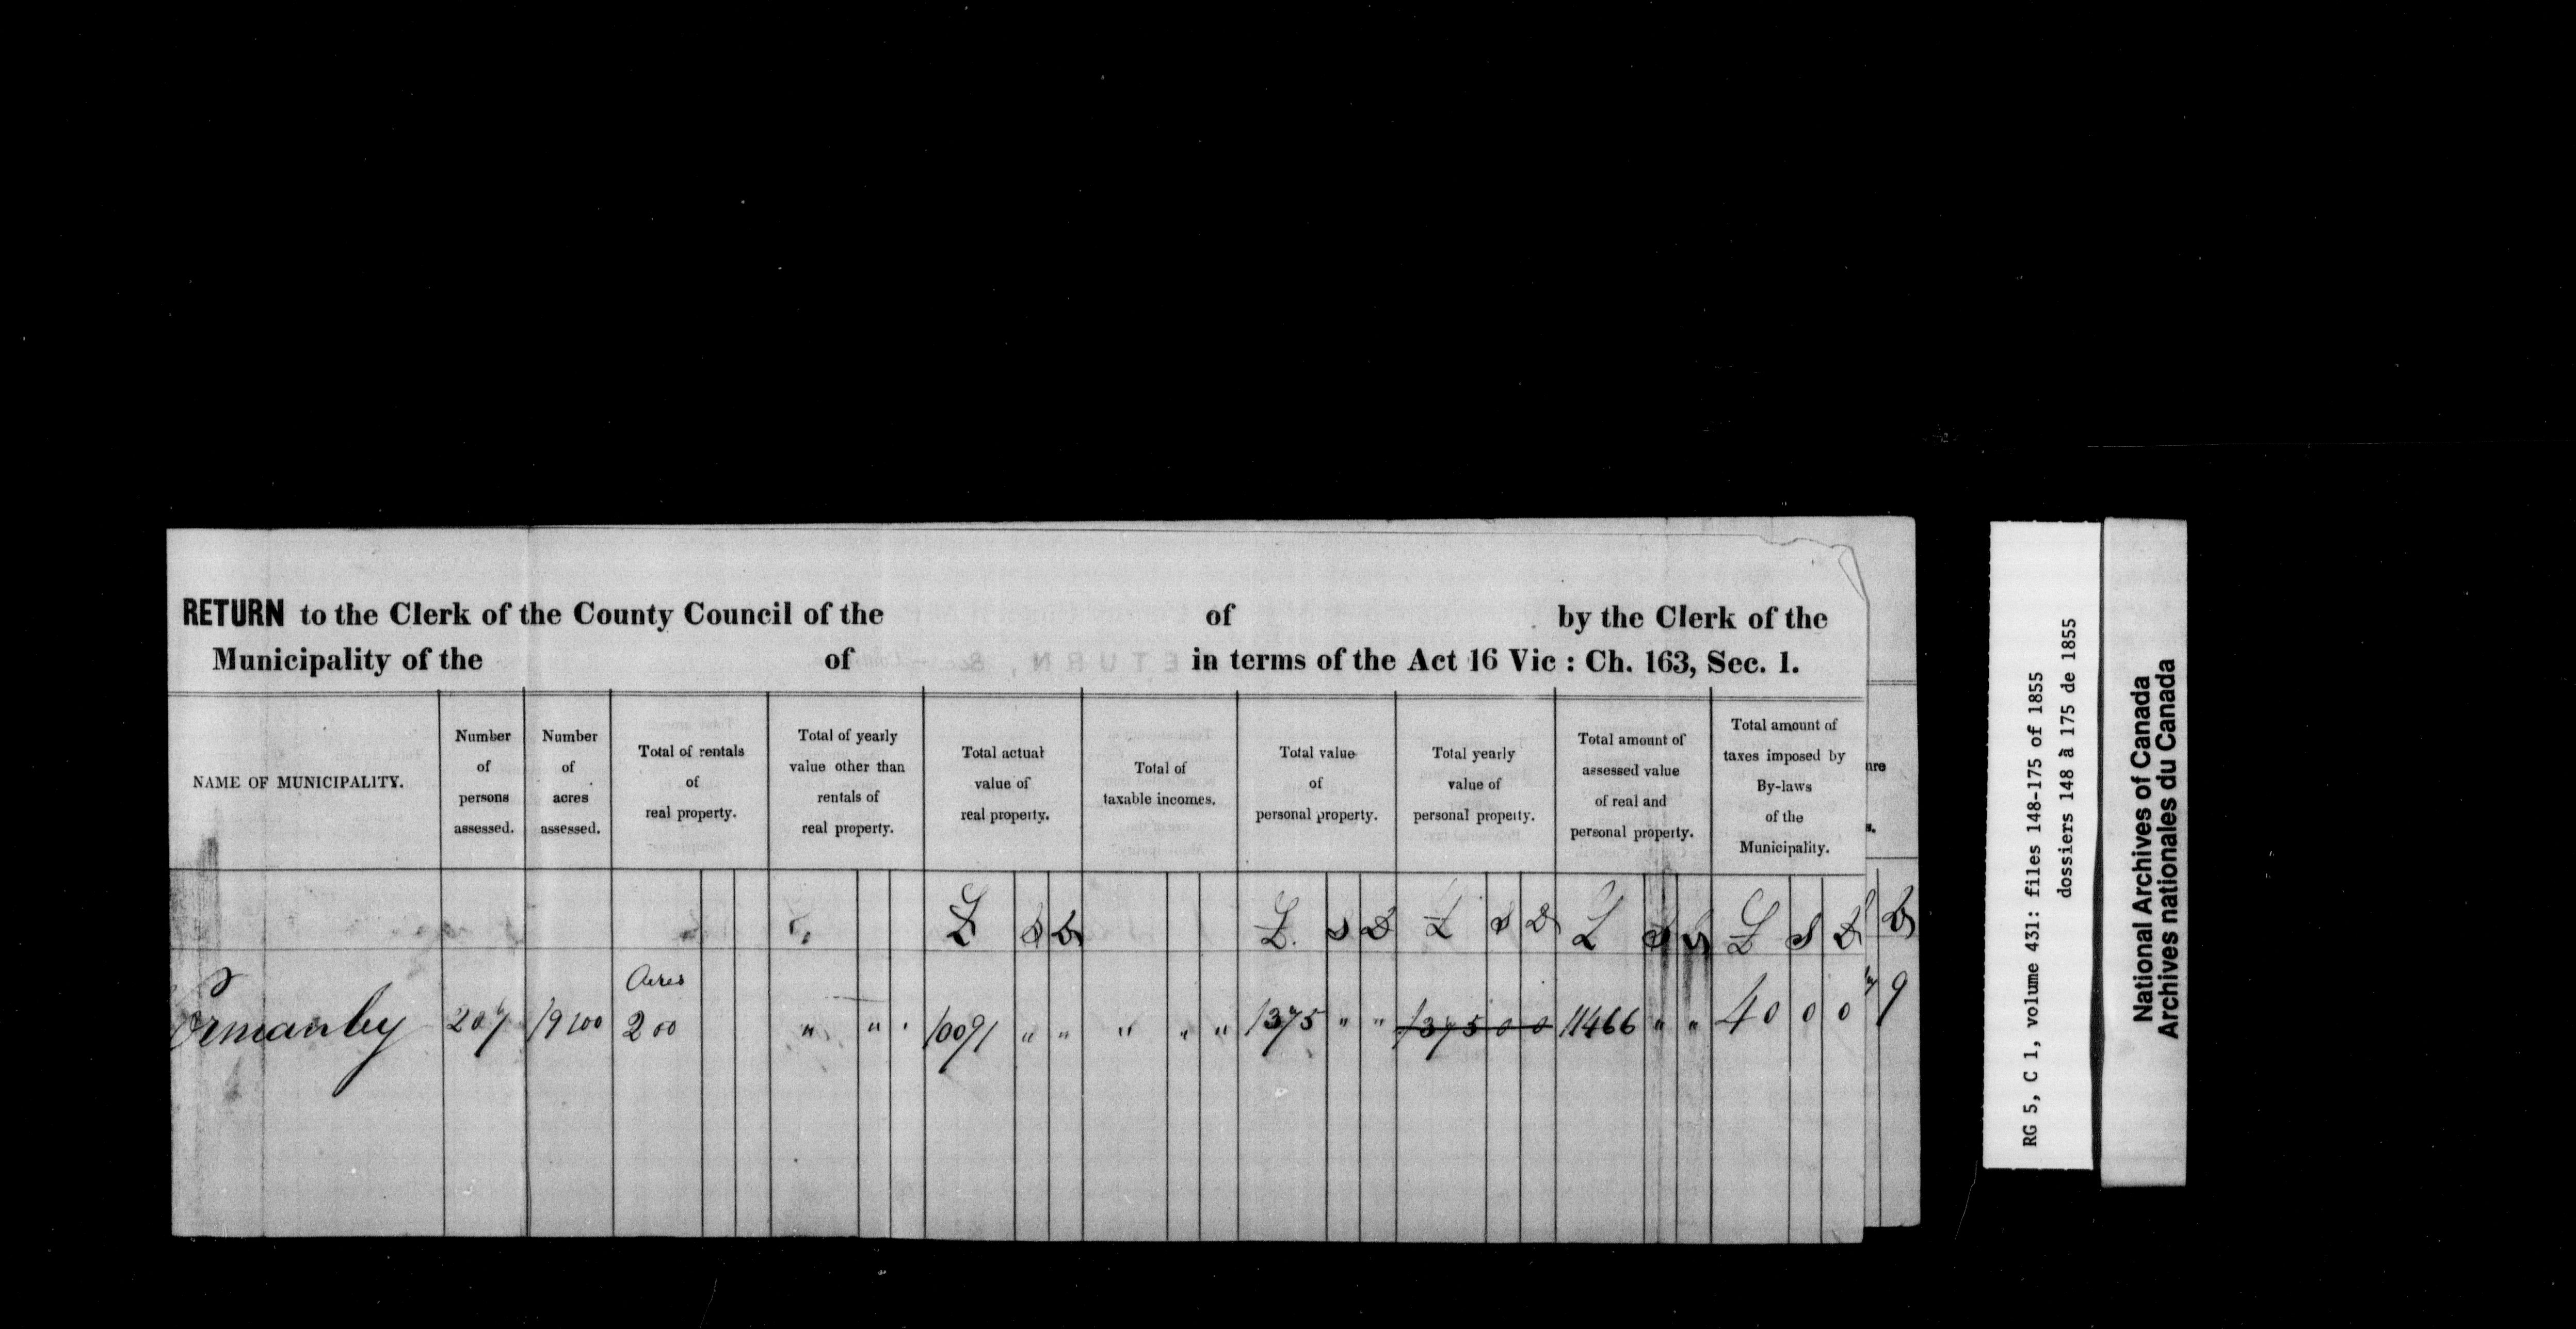 RETURN to the Clerk of the County Council of the of by the Clerk of the
Municipality of the of in terms of the Act 16 Vic : Ch. 163, Sec. 1.
NAME OF MUNICIPALITY.
Number of persons assessed.
Number of acres assessed.
Total of rentals of real property.
Total of yearly value other than rentals of real property.
Total actual value of real property.
Total of taxable incomes.
Total value of personal property.
Total yearly value of personal property.
Total amount of assessed value of real and personal property.
Total amount of taxes imposed by By-laws of the Municipality.
£ S D £ S D £ S D £ S D £ S D D
Acres
Ormanby 207 19100 200 " " 10091 " " " " " 1375 " " 1375 0 0 11466 " " 40 0 0 9
RG 5, C 1, volume 431: files 148-175 of 1855
dossiers 148 à 175 de 1855
National Archives of Canada
Archives nationales du Canada